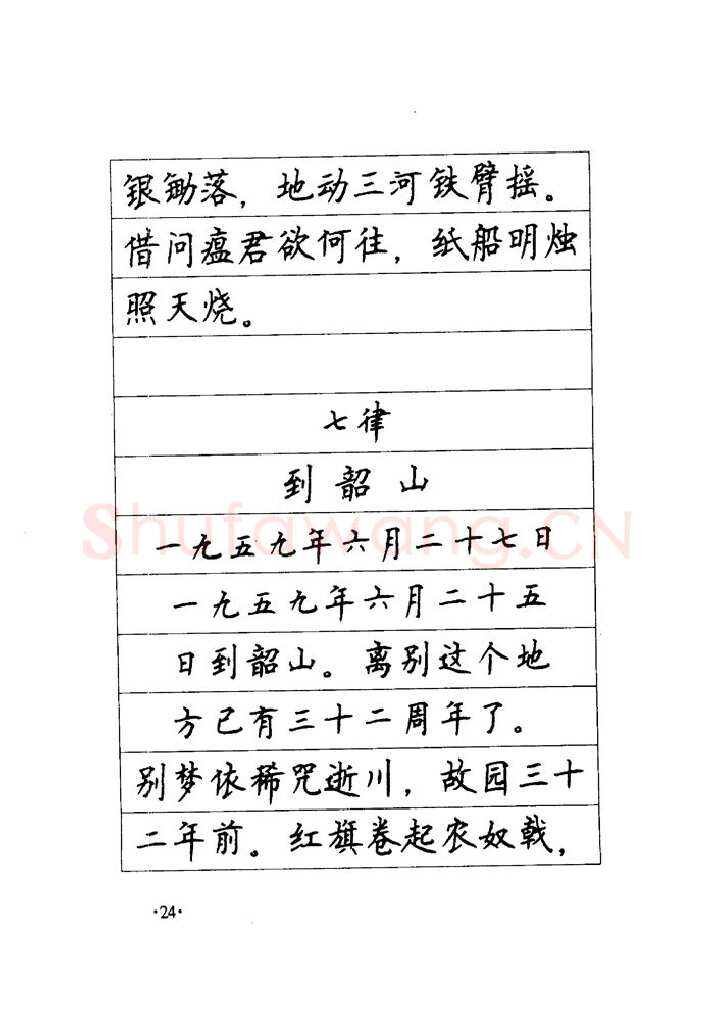 银锄落，地动三河铁臂摇。
借问瘟君欲何往，纸船明烛
照天烧。
七律
到韶山
一九五九年六月二十七日
一九五九年六月二十五
日到韶山。离别这个地
方已有三十二周年了。
别梦依稀咒逝川，故园三十
二年前。红旗卷起农奴戟，
·24·
Shufawang.CN